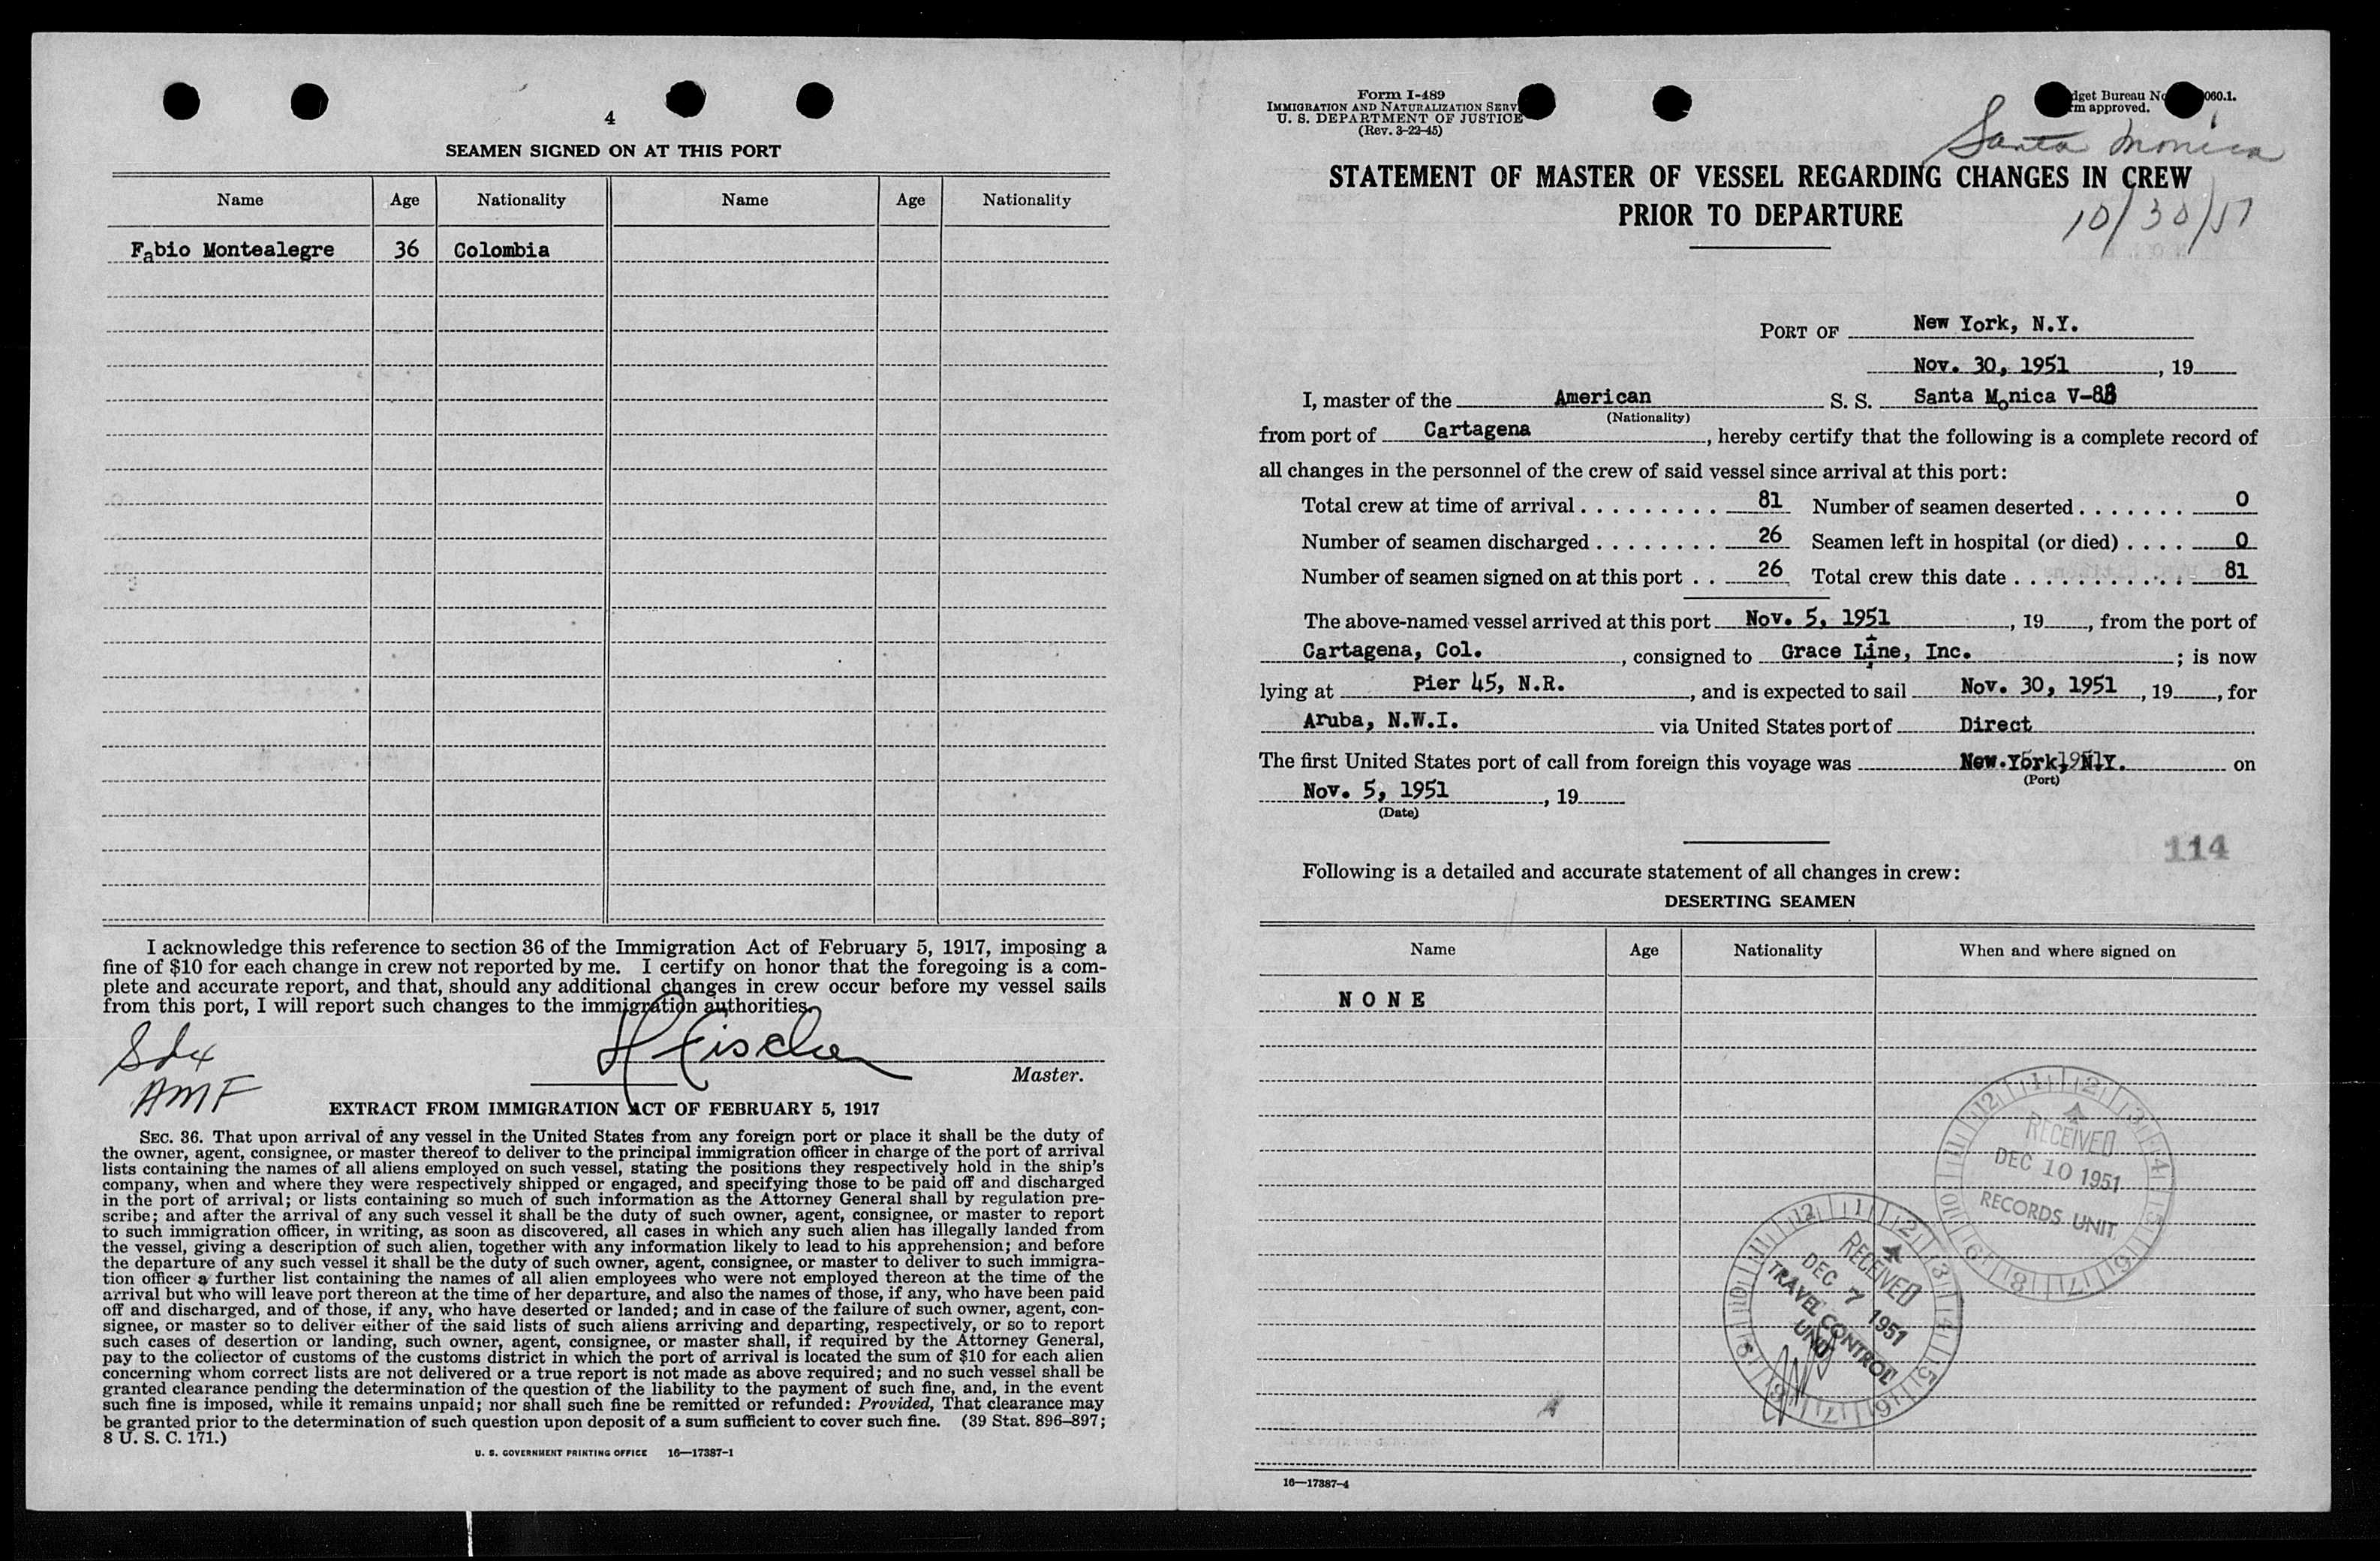 4
SEAMEN SIGNED ON AT THIS PORT
Name Age Nationality Name Age Nationality
Fabio Montealegre 36 Colombia
I acknowledge this reference to section 36 of the Immigration Act of February 5, 1917, imposing a
fine of $10 for each change in crew not reported by me. I certify on honor that the foregoing is a com-
plete and accurate report, and that, should any additional changes in crew occur before my vessel sails
from this port, I will report such changes to the immigration authorities.
H Fischer
Master.
AMF
EXTRACT FROM IMMIGRATION ACT OF FEBRUARY 5, 1917
SEC. 36. That upon arrival of any vessel in the United States from any foreign port or place it shall be the duty of
the owner, agent, consignee, or master thereof to deliver to the principal immigration officer in charge of the port of arrival
lists containing the names of all aliens employed on such vessel, stating the positions they respectively hold in the ship's
company, when and where they were respectively shipped or engaged, and specifying those to be paid off and discharged
in the port of arrival; or lists containing so much of such information as the Attorney General shall by regulation pre-
scribe; and after the arrival of any such vessel it shall be the duty of such owner, agent, consignee, or master to report
to such immigration officer, in writing, as soon as discovered, all cases in which any such alien has illegally landed from
the vessel, giving a description of such alien, together with any information likely to lead to his apprehension; and before
the departure of any such vessel it shall be the duty of such owner, agent, consignee, or master to deliver to such immigra-
tion officer a further list containing the names of all alien employees who were not employed thereon at the time of the
arrival but who will leave port thereon at the time of her departure, and also the names of those, if any, who have been paid
off and discharged, and of those, if any, who have deserted or landed; and in case of the failure of such owner, agent, con-
signee, or master so to deliver either of the said lists of such aliens arriving and departing, respectively, or so to report
such cases of desertion or landing, such owner, agent, consignee, or master shall, if required by the Attorney General,
pay to the collector of customs of the customs district in which the port of arrival is located the sum of $10 for each alien
concerning whom correct lists are not delivered or a true report is not made as above required; and no such vessel shall be
granted clearance pending the determination of the question of the liability to the payment of such fine, and, in the event
such fine is imposed, while it remains unpaid; nor shall such fine be remitted or refunded: Provided, That clearance may
be granted prior to the determination of such question upon deposit of a sum sufficient to cover such fine. (39 Stat. 896-897;
8 U. S. C. 171.)
U. S. GOVERNMENT PRINTING OFFICE 16—17387-1
Form I-489
IMMIGRATION AND NATURALIZATION SERV
U. S. DEPARTMENT OF JUSTICE
(Rev. 3-22-45)
dget Bureau No 060.1.
rm approved.
Santa Monica
STATEMENT OF MASTER OF VESSEL REGARDING CHANGES IN CREW
PRIOR TO DEPARTURE
10/30/51
PORT OF New York, N.Y.
Nov. 30, 1951, 19
I, master of the American S. S. Santa Monica V-88
(Nationality)
from port of Cartagena, hereby certify that the following is a complete record of
all changes in the personnel of the crew of said vessel since arrival at this port:
Total crew at time of arrival 81 Number of seamen deserted 0
Number of seamen discharged 26 Seamen left in hospital (or died) 0
Number of seamen signed on at this port 26 Total crew this date 81
The above-named vessel arrived at this port Nov. 5, 1951, 19, from the port of
Cartagena, Col., consigned to Grace Line, Inc.; is now
lying at Pier 45, N.R., and is expected to sail Nov. 30, 1951, 19, for
Aruba, N.W.I. via United States port of Direct
The first United States port of call from foreign this voyage was New York, N.Y. on
(Port)
Nov. 5, 1951, 19
(Date)
114
Following is a detailed and accurate statement of all changes in crew:
DESERTING SEAMEN
Name Age Nationality When and where signed on
NONE
RECEIVED
DEC 10 1951
RECORDS UNIT
RECEIVED
DEC 7 1951
TRAVEL CONTROL
UNIT
16—17387-4